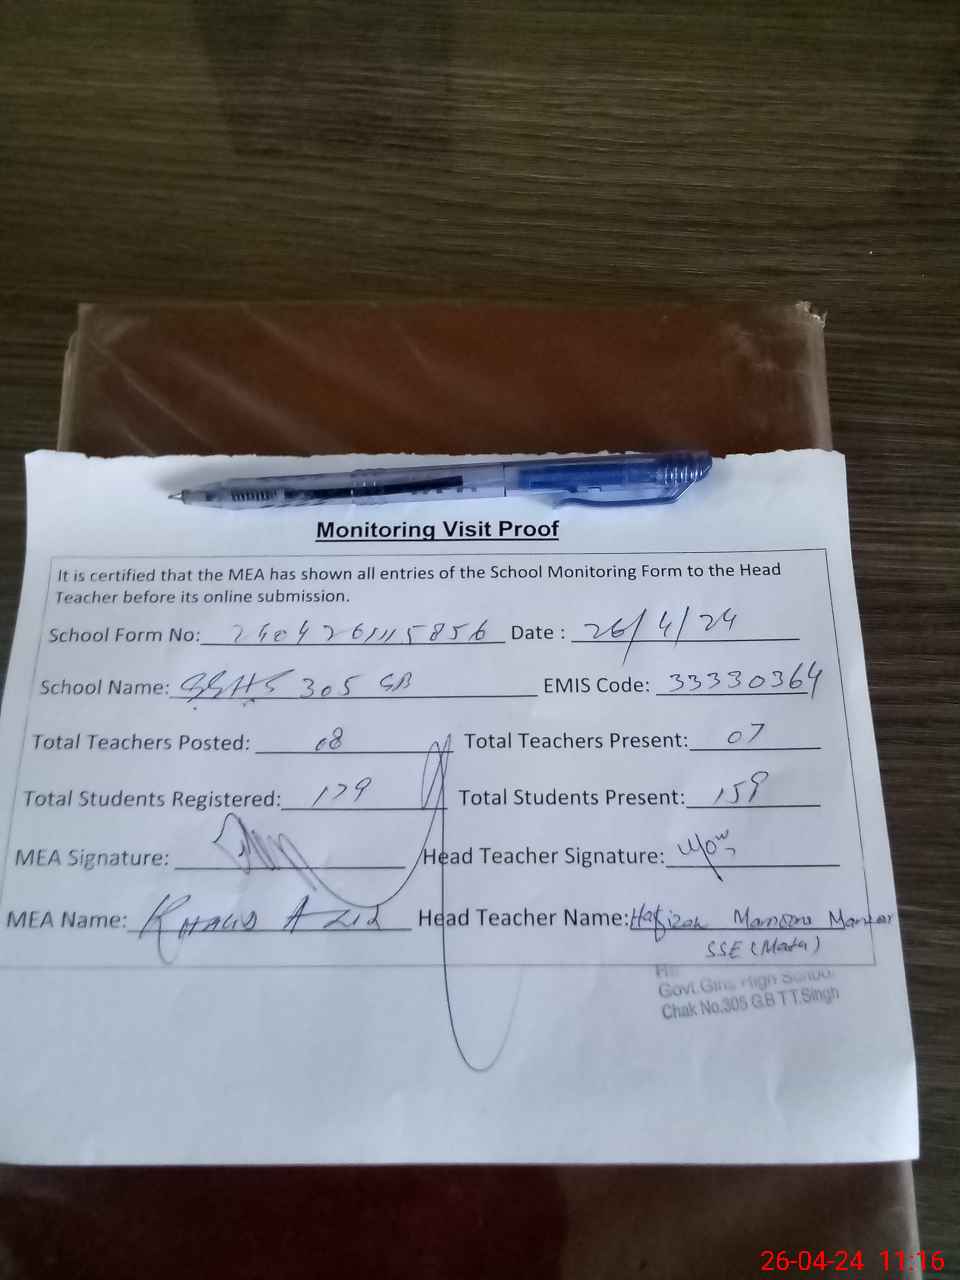 Monitoring Visit Proof
It is certified that the MEA has shown all entries of the School Monitoring Form to the Head
Teacher before its online submission.
School Form No: Date : 26/4/24
School Name: GGHS 305 GB EMIS Code: 33330364
Total Teachers Posted: 08 Total Teachers Present: 07
Total Students Registered: 179 Total Students Present: 159
MEA Signature: Head Teacher Signature:
MEA Name: KHALID AZIZ Head Teacher Name: Hafizah
SSE (Math)
Govt.Girls High School
Chak No.305 G.B T.T.Singh
26-04-24 11:16